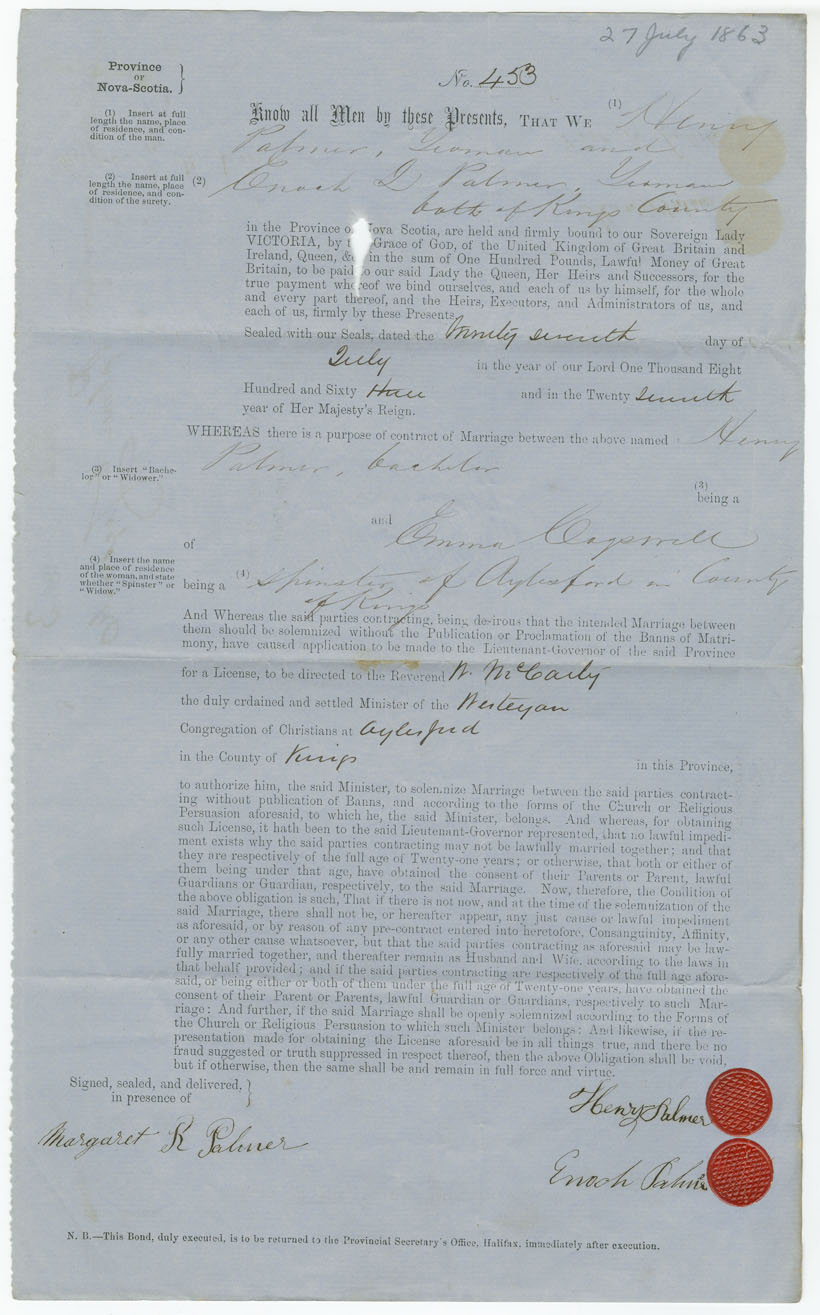 27 July 1863
Province
OF
Nova-Scotia. }
No. 453
(1) Insert at full
length the name, place
of residence, and con-
dition of the man.
Know all Men by these Presents, THAT WE (1) Henry
Palmer, Yeoman and
(2) Insert at full
length the name, place
of residence, and con-
dition of the surety.
(2) Enoch D Palmer, Yeoman
both of Kings County
in the Province of Nova Scotia, are held and firmly bound to our Sovereign Lady
VICTORIA, by the Grace of GOD, of the United Kingdom of Great Britain and
Ireland, Queen, &c in the sum of One Hundred Pounds, Lawful Money of Great
Britain, to be paid to our said Lady the Queen, Her Heirs and Successors, for the
true payment whereof we bind ourselves, and each of us by himself, for the whole
and every part thereof, and the Heirs, Executors, and Administrators of us, and
each of us, firmly by these Presents.
Sealed with our Seals, dated the twenty seventh day of
July in the year of our Lord One Thousand Eight
Hundred and Sixty three and in the Twenty seventh
year of Her Majesty's Reign.
WHEREAS there is a purpose of contract of Marriage between the above named Henry
Palmer, bachelor
(3) Insert "Bache-
lor" or "Widower."
(3)
being a
and
of Emma Cogswell
(4) Insert the name
and place of residence
of the woman, and state
whether "Spinster" or
"Widow."
being a (4) spinster, of Aylesford in County
of Kings
And Whereas the said parties contracting, being desirous that the intended Marriage between
them should be solemnized without the Publication or Proclamation of the Banns of Matri-
mony, have caused application to be made to the Lieutenant-Governor of the said Province
for a License, to be directed to the Reverend W. McCarty
the duly ordained and settled Minister of the Wesleyan
Congregation of Christians at Aylesford
in the County of Kings in this Province,
to authorize him, the said Minister, to solemnize Marriage between the said parties contract-
ing without publication of Banns, and according to the forms of the Church or Religious
Persuasion aforesaid, to which he, the said Minister, belongs. And whereas, for obtaining
such License, it hath been to the said Lieutenant-Governor represented, that no lawful impedi-
ment exists why the said parties contracting may not be lawfully married together; and that
they are respectively of the full age of Twenty-one years; or otherwise, that both or either of
them being under that age, have obtained the consent of their Parents or Parent, lawful
Guardians or Guardian, respectively, to the said Marriage. Now, therefore, the Condition of
the above obligation is such, That if there is not now, and at the time of the solemnization of the
said Marriage, there shall not be, or hereafter appear, any just cause or lawful impediment
as aforesaid, or by reason of any pre-contract entered into heretofore, Consanguinity, Affinity,
or any other cause whatsoever, but that the said parties contracting as aforesaid may be law-
fully married together, and thereafter remain as Husband and Wife, according to the laws in
that behalf provided; and if the said parties contracting are respectively of the full age afore-
said, or being either or both of them under the full age of Twenty-one years, have obtained the
consent of their Parent or Parents, lawful Guardian or Guardians, respectively to such Mar-
riage: And further, if the said Marriage shall be openly solemnized according to the Forms of
the Church or Religious Persuasion to which such Minister belongs: And likewise, if the re-
presentation made for obtaining the License aforesaid be in all things true, and there be no
fraud suggested or truth suppressed in respect thereof, then the above Obligation shall be void,
but if otherwise, then the same shall be and remain in full force and virtue.
Signed, sealed, and delivered, }
in presence of
Henry Palmer
Margaret R Palmer
Enoch Palmer
N. B.—This Bond, duly executed, is to be returned to the Provincial Secretary's Office, Halifax, immediately after execution.